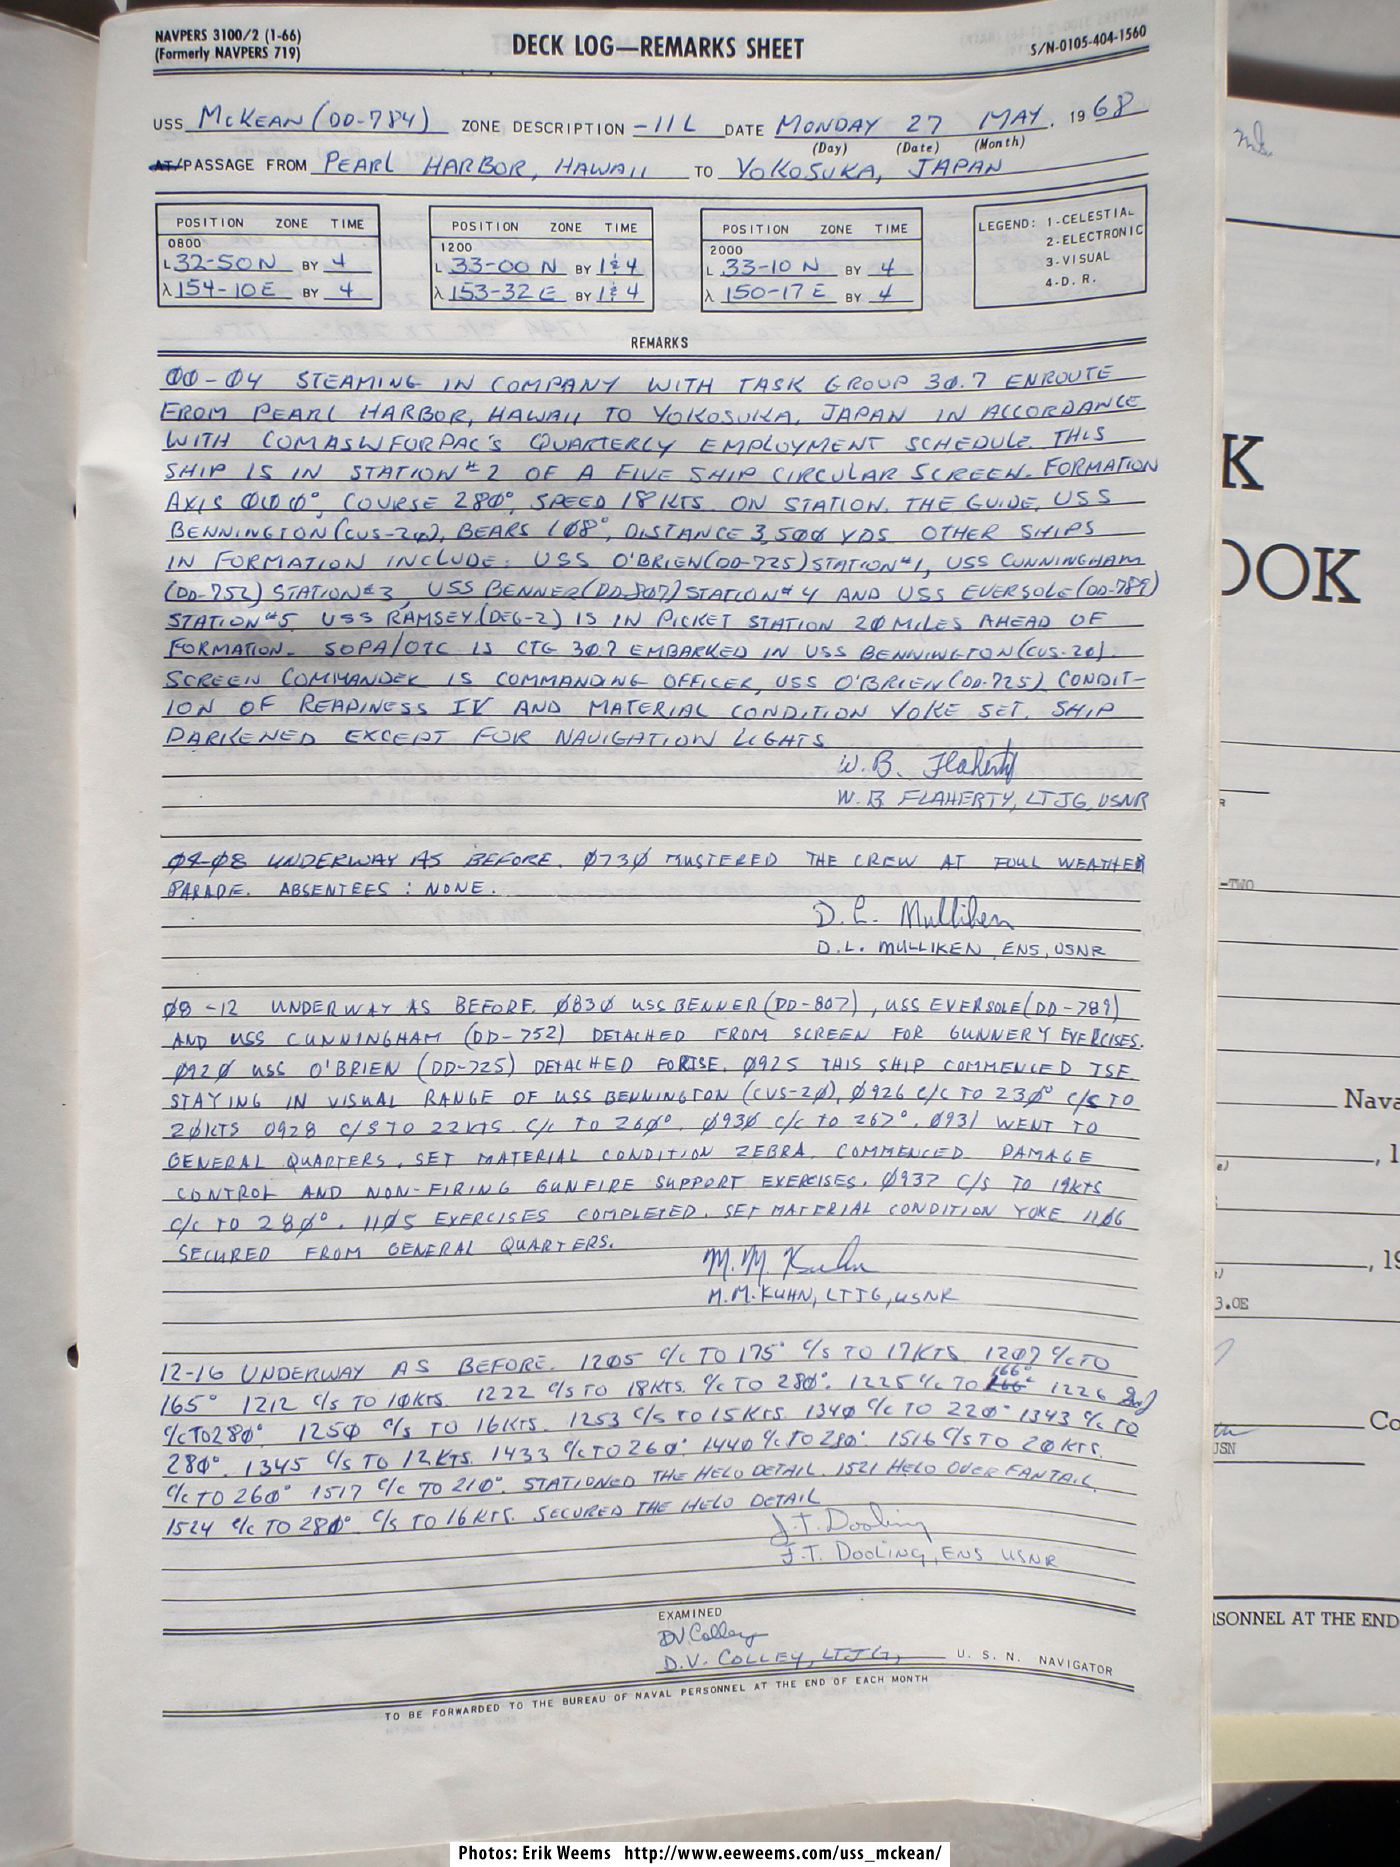 NAVPERS 3100/2 (1-66)
(Formerly NAVPERS 719)
DECK LOG—REMARKS SHEET
S/N-0105-404-1560
USS McKEAN (DD-784) ZONE DESCRIPTION -11L DATE MONDAY 27 MAY, 1968
(Day) (Date) (Month)
AT/PASSAGE FROM PEARL HARBOR, HAWAII TO YOKOSUKA, JAPAN
POSITION ZONE TIME
0800
L 32-50N BY 4
λ 154-10E BY 4
POSITION ZONE TIME
1200
L 33-00 N BY 1&4
λ 153-32E BY 1&4
POSITION ZONE TIME
2000
L 33-10 N BY 4
λ 150-17E BY 4
LEGEND: 1-CELESTIAL
2-ELECTRONIC
3-VISUAL
4-D. R.
REMARKS
00-04 STEAMING IN COMPANY WITH TASK GROUP 30.7 ENROUTE
FROM PEARL HARBOR, HAWAII TO YOKOSUKA, JAPAN IN ACCORDANCE
WITH COMASWFORPAC'S QUARTERLY EMPLOYMENT SCHEDULE. THIS
SHIP IS IN STATION #2 OF A FIVE SHIP CIRCULAR SCREEN. FORMATION
AXIS 000°, COURSE 280°, SPEED 18 KTS. ON STATION. THE GUIDE, USS
BENNINGTON (CVS-20), BEARS 108°, DISTANCE 3,500 YDS. OTHER SHIPS
IN FORMATION INCLUDE: USS O'BRIEN (DD-725) STATION #1, USS CUNNINGHAM
(DD-752) STATION #3, USS BENNER (DD-807) STATION #4 AND USS EVERSOLE (DD-789)
STATION #5. USS RAMSEY (DEG-2) IS IN PICKET STATION 20 MILES AHEAD OF
FORMATION. SOPA/OTC IS CTG 30.7 EMBARKED IN USS BENNINGTON (CVS-20).
SCREEN COMMANDER IS COMMANDING OFFICER, USS O'BRIEN (DD-725). CONDIT-
ION OF READINESS IV AND MATERIAL CONDITION YOKE SET. SHIP
DARKENED EXCEPT FOR NAVIGATION LIGHTS.
W. B. Flaherty
W. B FLAHERTY, LTJG, USNR
04-08 UNDERWAY AS BEFORE. 0730 MUSTERED THE CREW AT FOUL WEATHER
PARADE. ABSENTEES: NONE.
D. L. Mulliken
D. L. MULLIKEN, ENS, USNR
08-12 UNDERWAY AS BEFORE. 0830 USS BENNER (DD-807), USS EVERSOLE (DD-789)
AND USS CUNNINGHAM (DD-752) DETACHED FROM SCREEN FOR GUNNERY EXERCISES.
0920 USS O'BRIEN (DD-725) DETACHED FOR ISE. 0925 THIS SHIP COMMENCED ISE
STAYING IN VISUAL RANGE OF USS BENNINGTON (CVS-20), 0926 C/C TO 230° C/S TO
20KTS 0928 C/S TO 22KTS. C/C TO 260°. 0930 C/C TO 267°. 0931 WENT TO
GENERAL QUARTERS, SET MATERIAL CONDITION ZEBRA. COMMENCED DAMAGE
CONTROL AND NON-FIRING GUNFIRE SUPPORT EXERCISES. 0937 C/S TO 19KTS
C/C TO 280°. 1105 EXERCISES COMPLETED. SET MATERIAL CONDITION YOKE 1106
SECURED FROM GENERAL QUARTERS.
M. M. Kuhn
M. M. KUHN, LTJG, USNR
12-16 UNDERWAY AS BEFORE. 1205 C/C TO 175° C/S TO 17KTS. 1207 C/C TO
165° 1212 C/S TO 10KTS. 1222 C/S TO 18KTS. C/C TO 280°. 1225 C/C TO 166° 1226
C/C TO 280°. 1250 C/S TO 16KTS. 1253 C/S TO 15KTS. 1340 C/C TO 220° 1343 C/C TO
280°. 1345 C/S TO 12KTS. 1433 C/C TO 260° 1440 C/C TO 280°. 1516 C/S TO 20KTS.
C/C TO 260° 1517 C/C TO 210°. STATIONED THE HELO DETAIL. 1521 HELO OVER FANTAIL.
1524 C/C TO 280° C/S TO 16KTS. SECURED THE HELO DETAIL
J. T. Dooling
J. T. DOOLING, ENS USNR
EXAMINED
DV Colley
D.V. COLLEY, LTJG, U. S. N. NAVIGATOR
TO BE FORWARDED TO THE BUREAU OF NAVAL PERSONNEL AT THE END OF EACH MONTH
K
OOK
-TWO
Nava
, 1
, 19
3.0E
USN
Co
RSONNEL AT THE END
Photos: Erik Weems http://www.eeweems.com/uss_mckean/